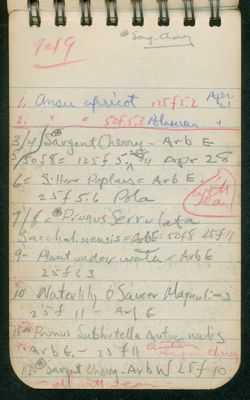 7 of 9
1. Ansu apricot 125 f 5.2 Apr.
2. " " 50 f 5.3 Polascreen "
3/4/ Sargent Cherry - Arb E
5/50.f8 = 125 f 5. Apr 28
6 = Silver Poplars = Arb E.
25 f 5.6 Pola
with Jean
7/8 = Prunus Serrulata
Sacchalinensis = Arb E = 50 f 8 25 f 11
9 - Plant under water = Arb E
25 f 6.3
10 Waterlily & Saucer Magnolias
25 f 11 - Arb E
11 = Prunus Subhirtella Autumnalis
Arb E. - 25 f 11 Cherry
12 = Sargent Cherry - Arb W 25 f 10
- all with Jean